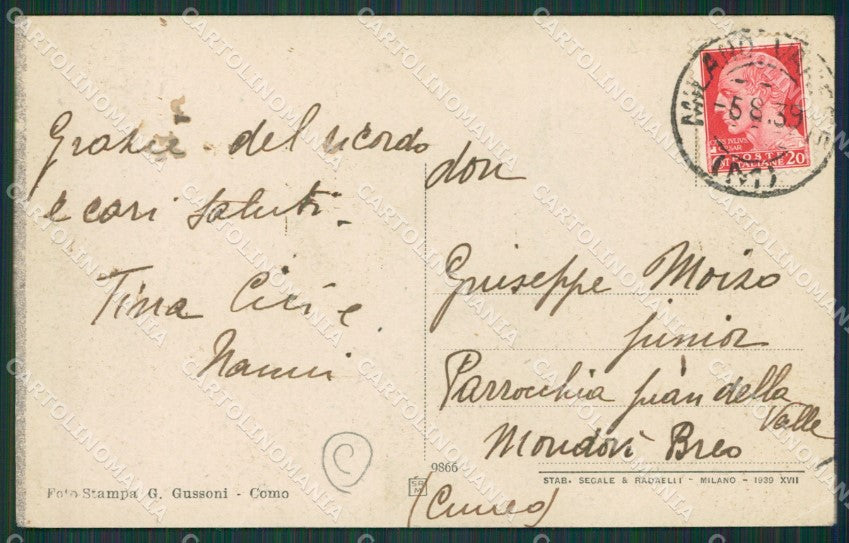 Grazie del ricordo
e cari saluti.
Tina Cici e
Nanni
Foto Stampa G. Gussoni - Como
MILANO
-5 8.39
20
don
Giuseppe Moizo
junior
Parrocchia pian della
Valle
Mondovì Breo
(Cuneo)
9866
STAB. SEGALE & RADAELLI - MILANO - 1939 XVII
CARTOLINOMANIA